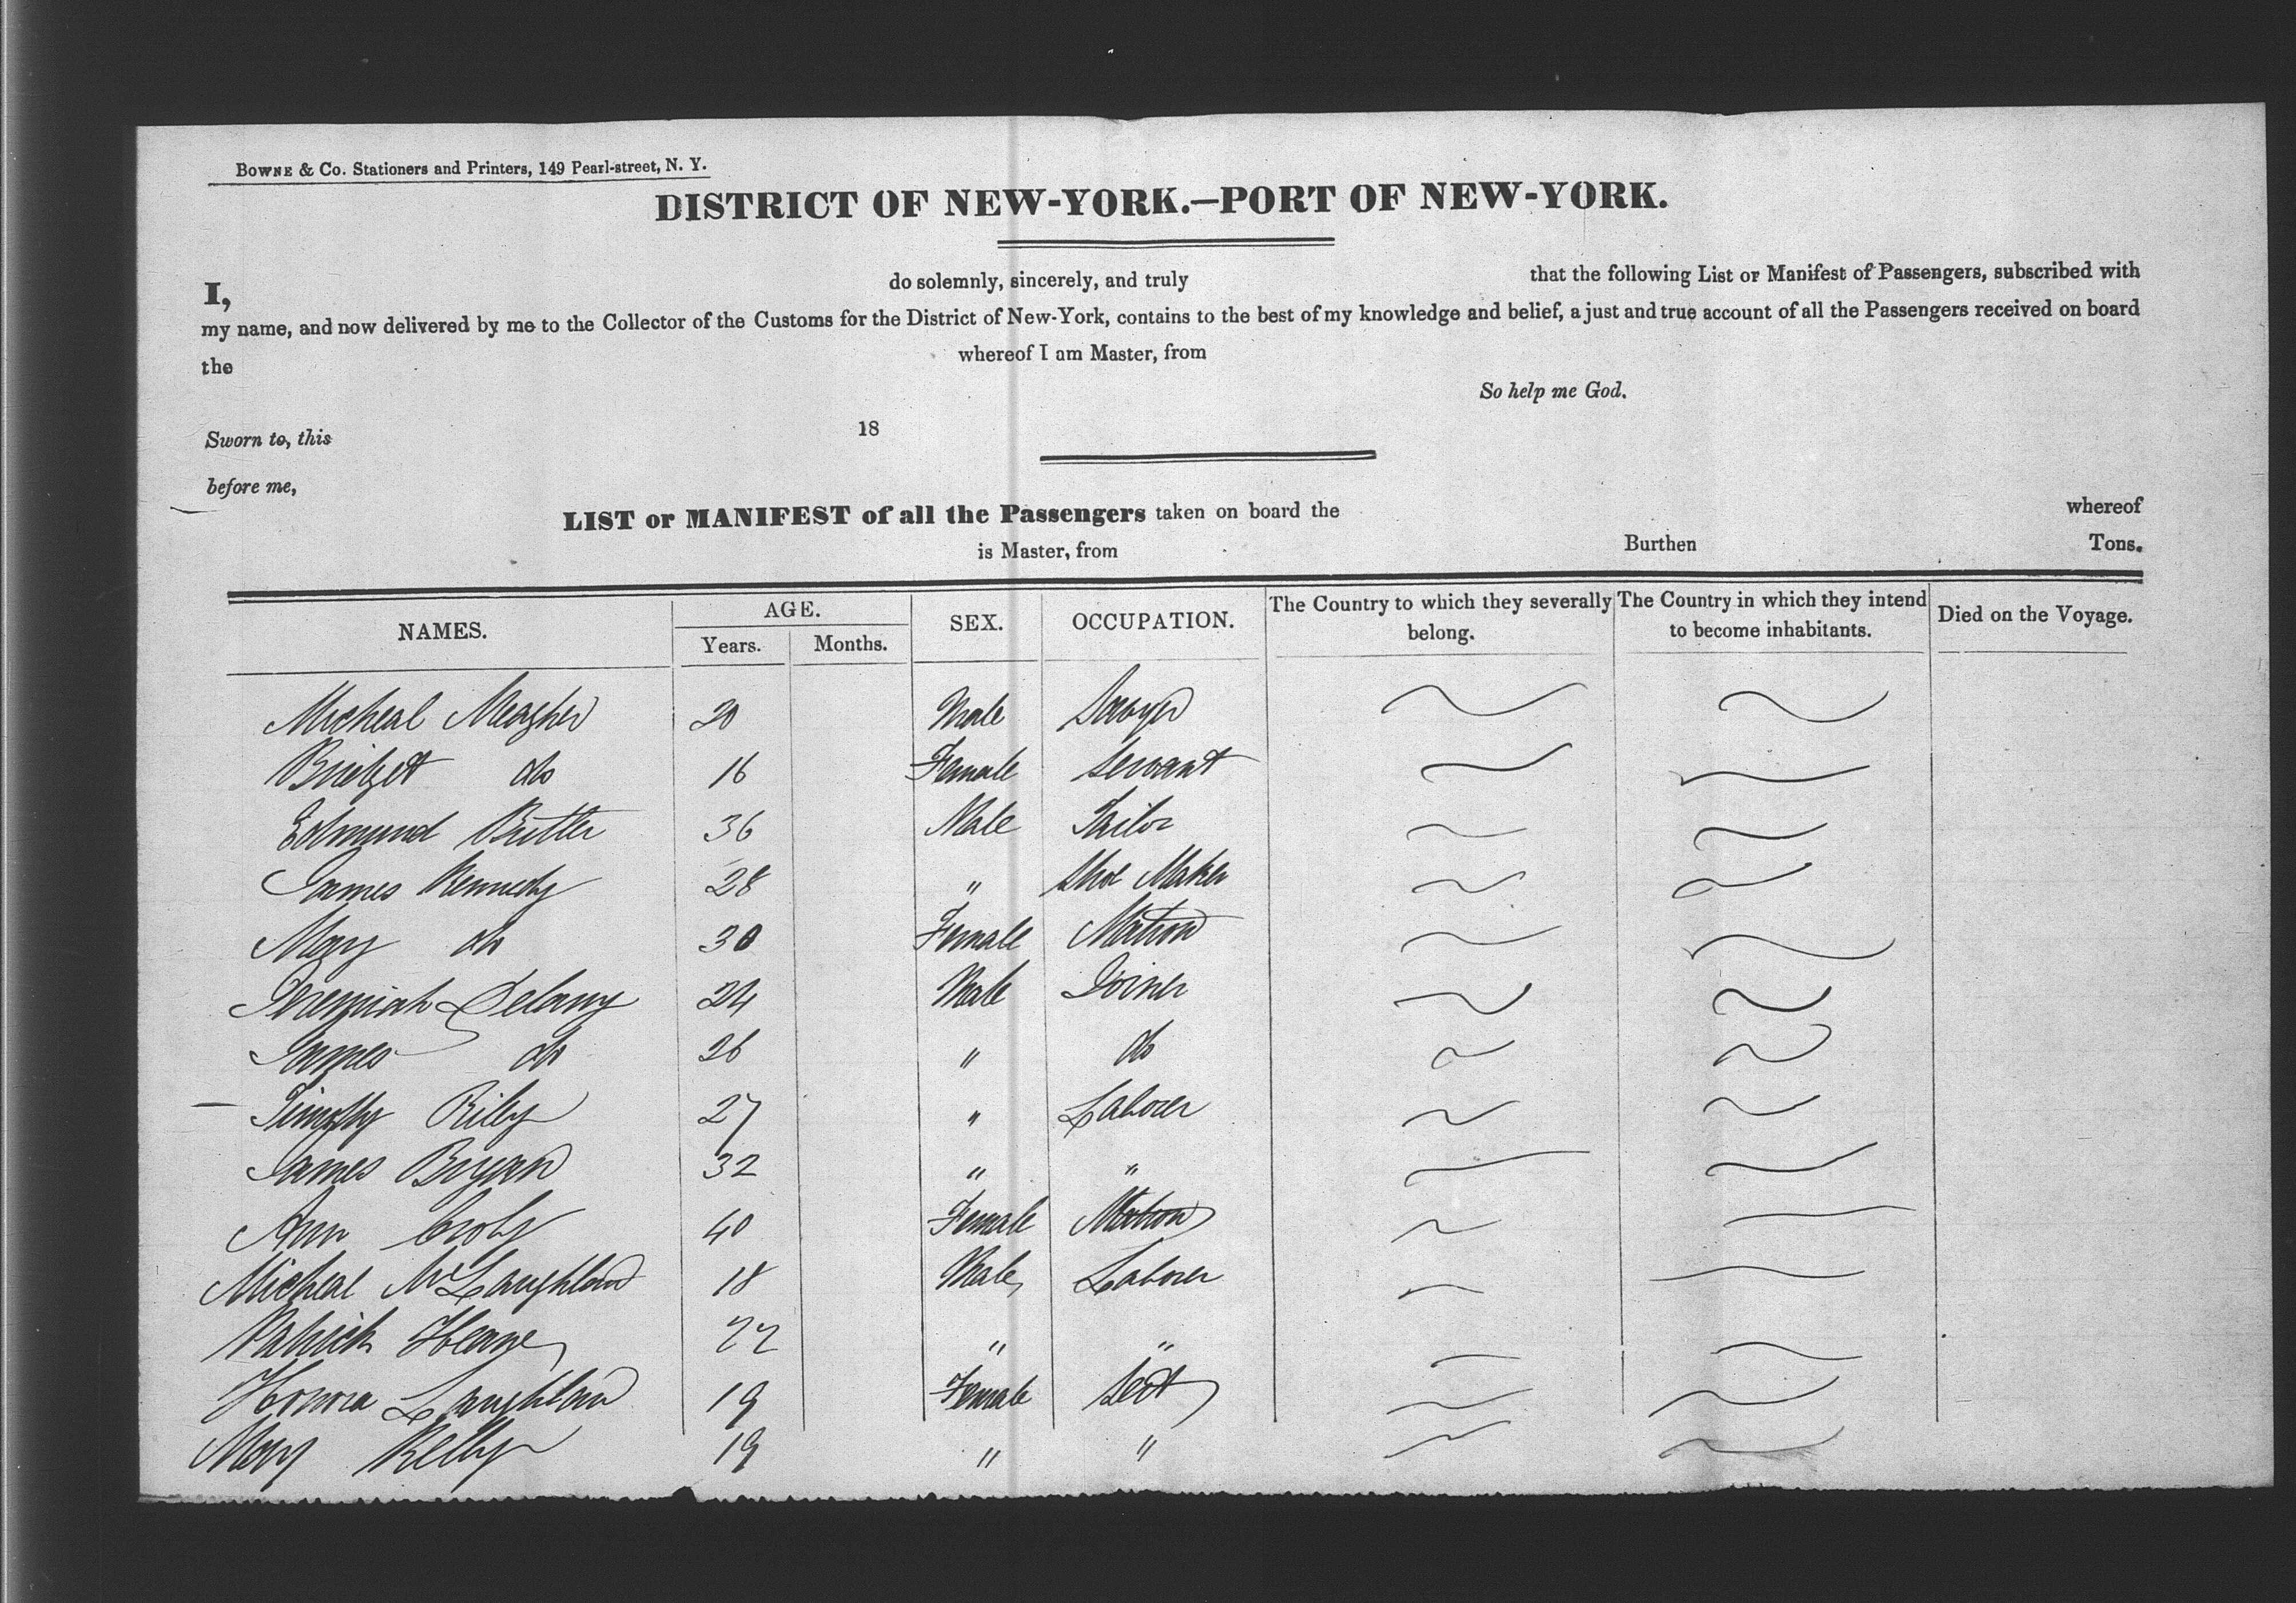 BOWNE & Co. Stationers and Printers, 149 Pearl-street, N. Y.
DISTRICT OF NEW-YORK.—PORT OF NEW-YORK.
I, do solemnly, sincerely, and truly that the following List or Manifest of Passengers, subscribed with
my name, and now delivered by me to the Collector of the Customs for the District of New-York, contains to the best of my knowledge and belief, a just and true account of all the Passengers received on board
the whereof I am Master, from
So help me God.
Sworn to, this 18
before me,
LIST or MANIFEST of all the Passengers taken on board the whereof
is Master, from Burthen Tons.
NAMES. AGE. Years. Months. SEX. OCCUPATION. The Country to which they severally belong. The Country in which they intend to become inhabitants. Died on the Voyage.
Micheal Meagher 20 Male Sawyer
Bridget do 16 Female Servant
Edmund Butler 36 Male Tailor
James Kennedy 28 " Shoe Maker
Mary do 30 Female Matron
Jeremiah Delany 24 Male Joiner
James do 26 " do
Timothy Riley 27 " Laborer
James Bryan 32 " "
Ann 40 Female Matron
Micheal McLaughlan 18 Male Laborer
Patrick 22 " "
Honora Laughlan 19 Female
Mary Kelly 19 " "